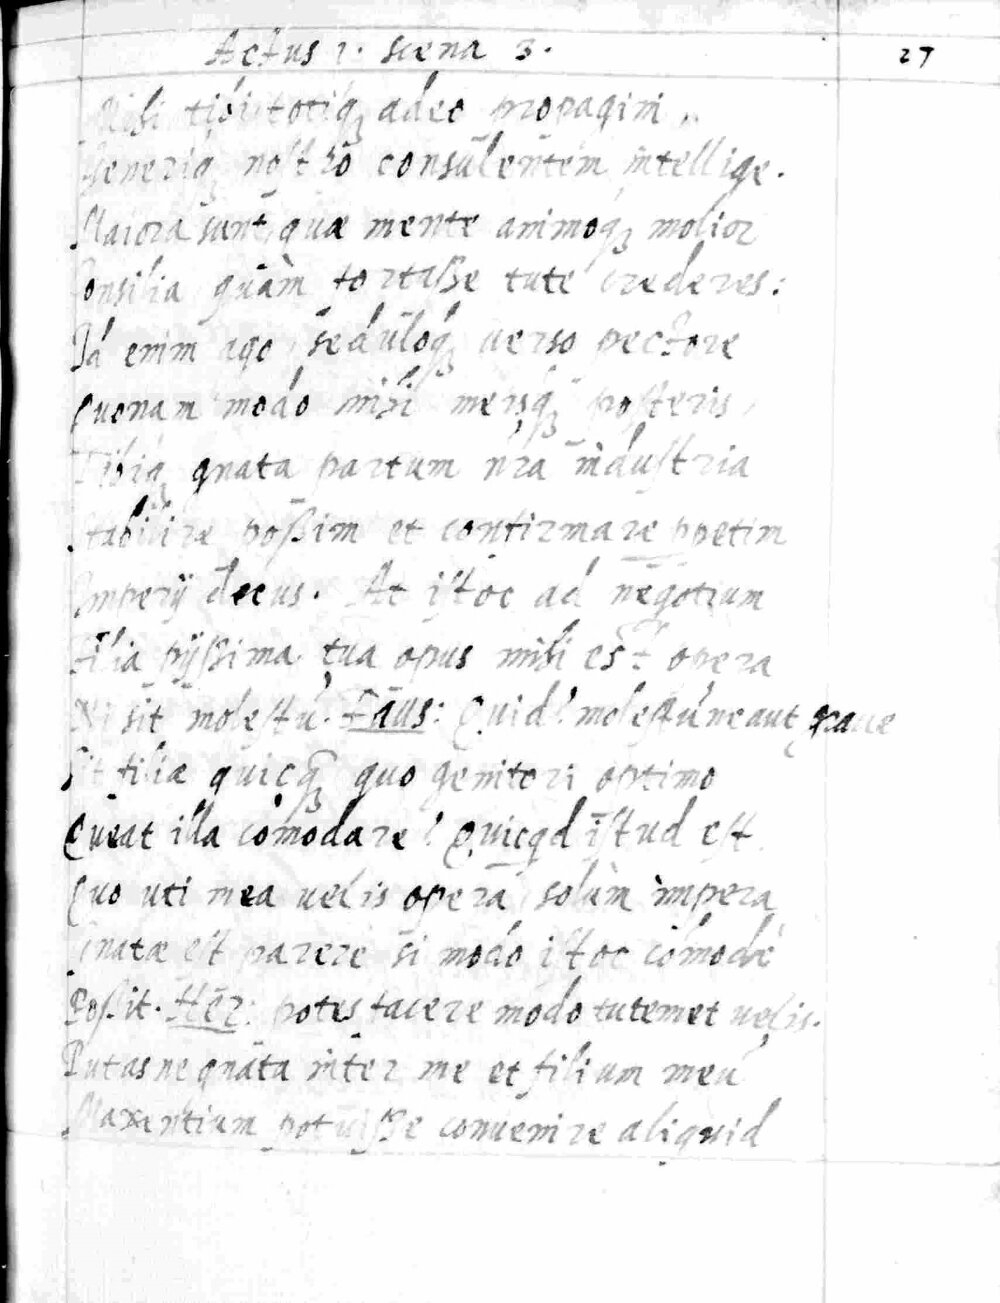 Actus 2. scena 3. 27
Mihi tibi totiq; adeo propagini
Generiq; nostro consulentem intellige.
Maiora sunt quæ mente animoq; molior
Consilia quàm fortasse tute crederes:
Id enim ago, seduloq; verso pectore
Quonam modo mihi meisq; posteris,
Tibiq; gnata partum nr̃a industria
Stabilire possim et confirmare ppetim
Imperij decus. At istoc ad negotium
Filia pijssima tua opus mihi est opera
Ni sit molestũ. Faus: Quid? molestũ ne aut graue
Sit filiæ quicq̃ quo genitori optimo
Queat illa cõmodare? Quicqd istud est
Quo uti mea uelis opera solùm impera
Gnatæ est parere si modo istoc cõmodè
Possit. Her: potes facere modo tutemet uelis.
Putas ne gnata inter me et filium meũ
Maxentium potuisse conuenire aliquid